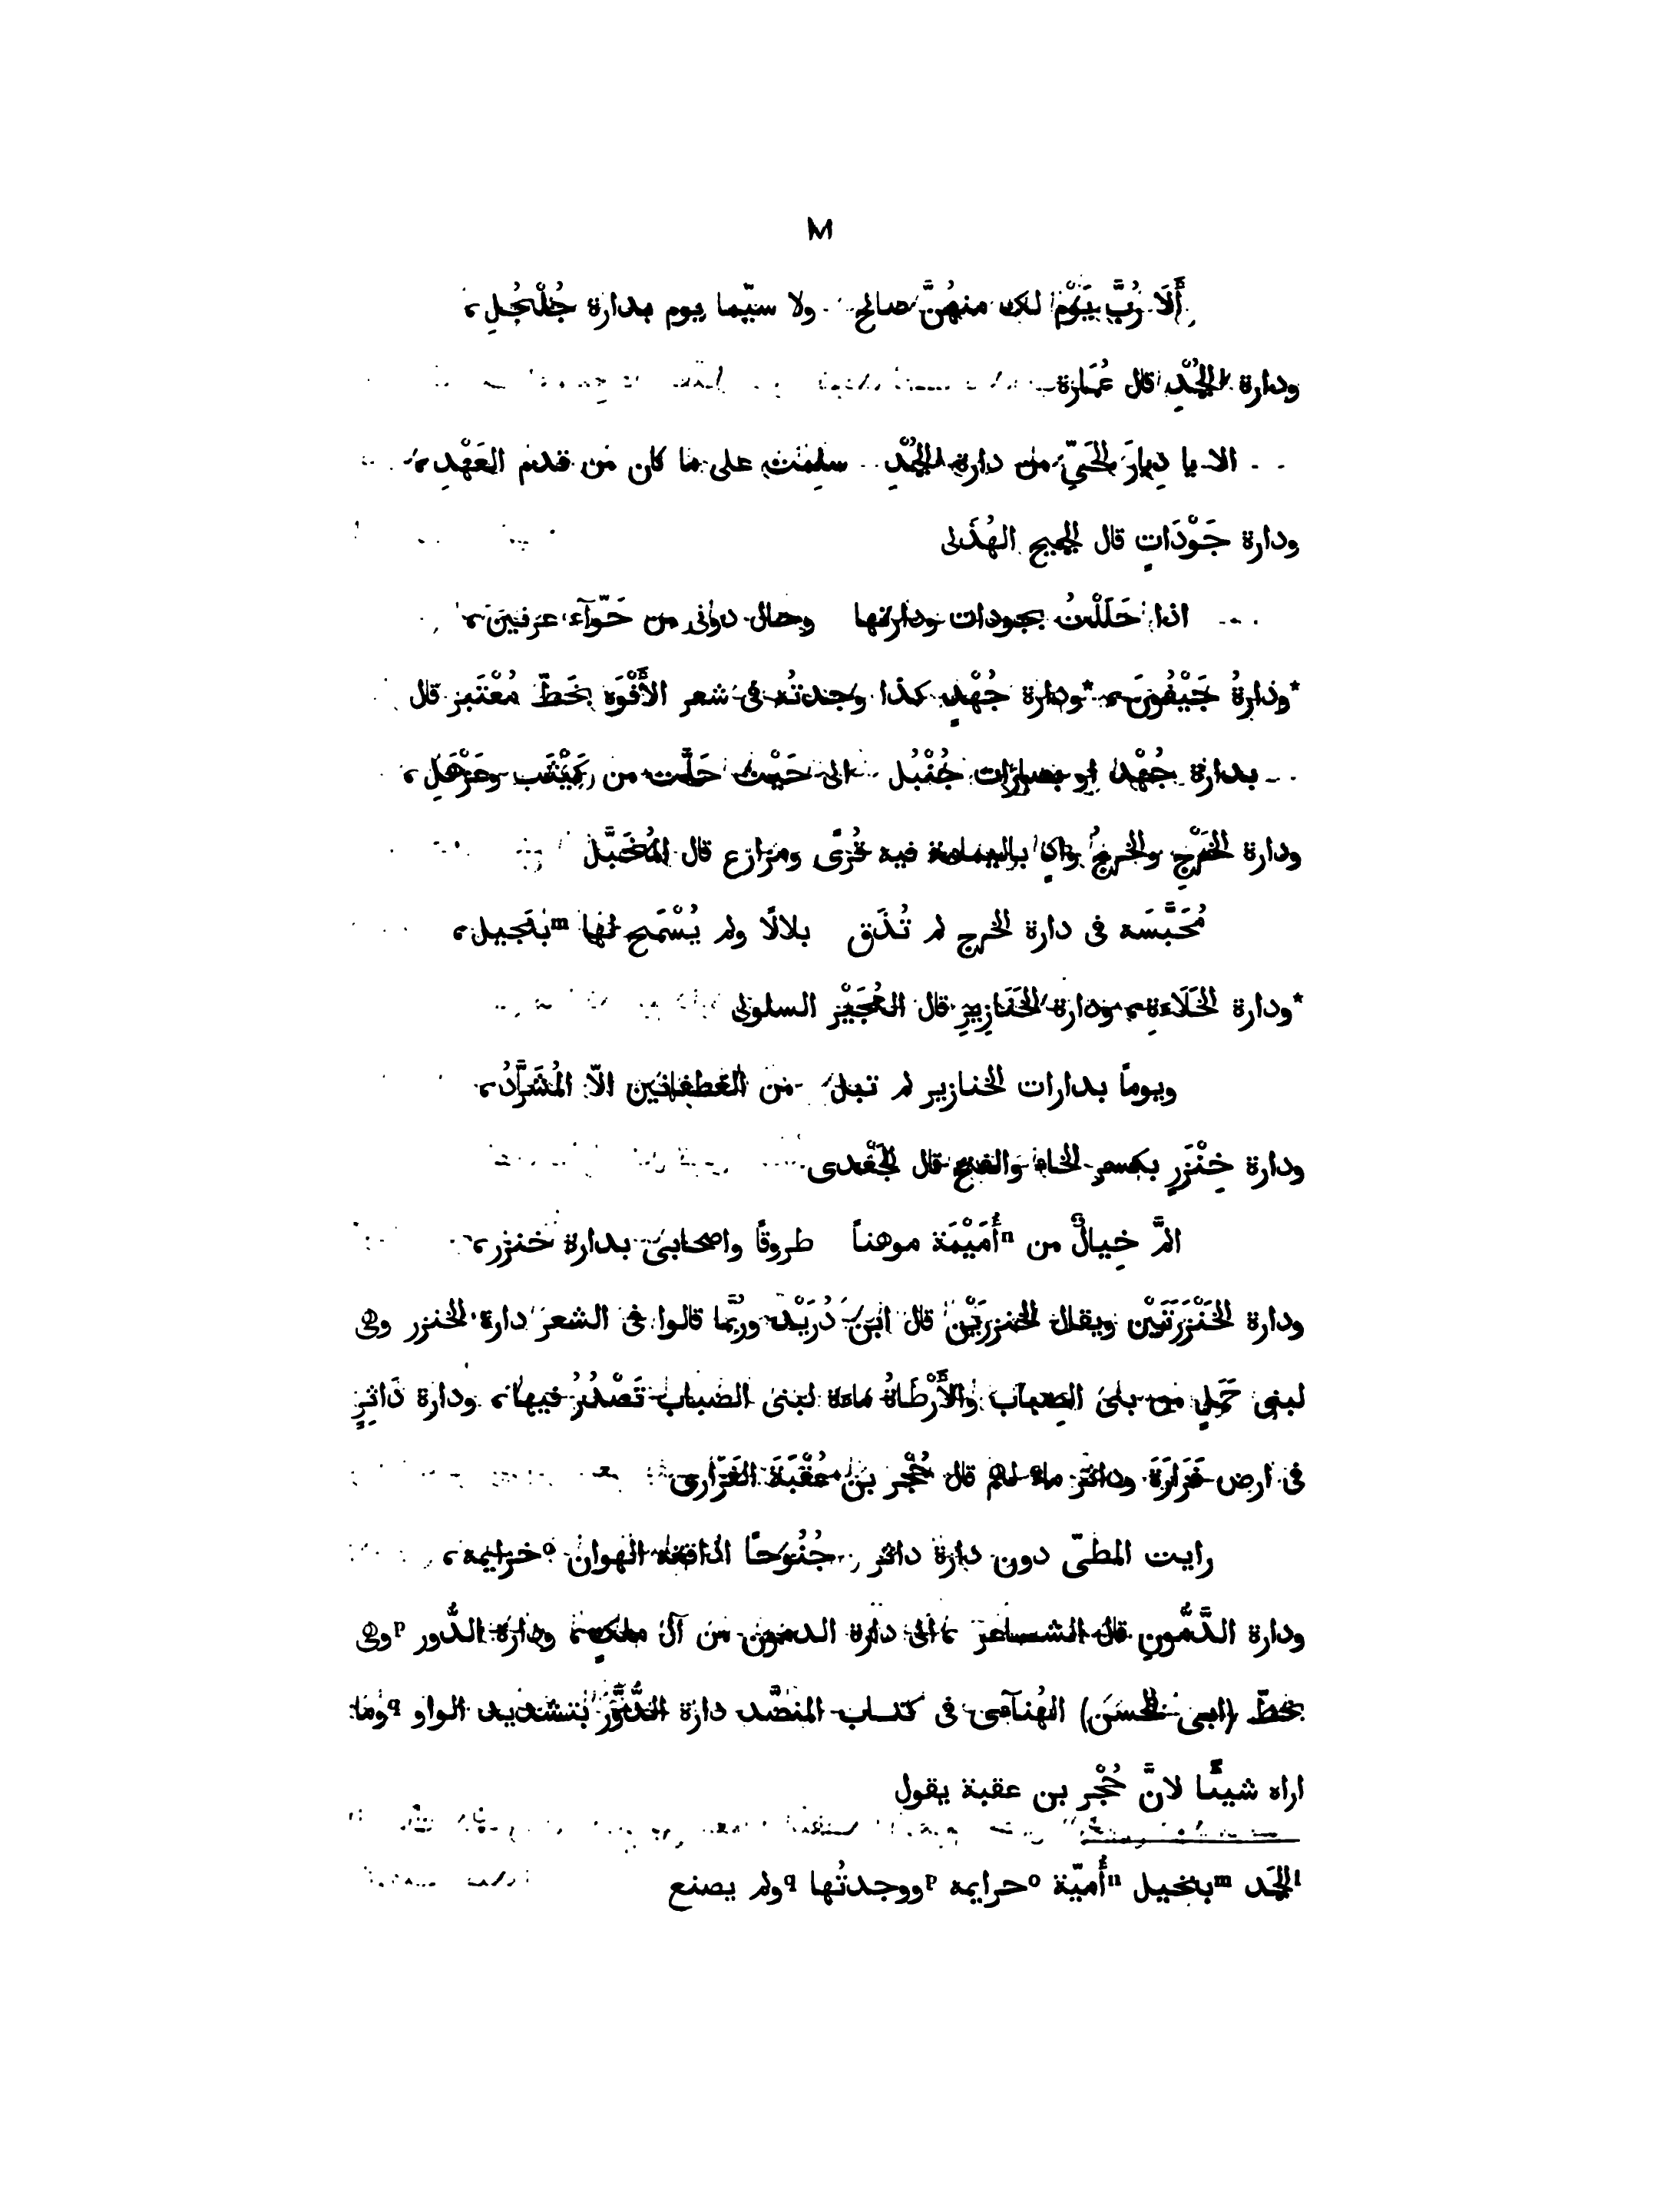 ٢٨
أَلَا رُبَّ يَوْم لك منهُنَّ صالح ولا سيّما يوم بدارة جُلْجُلِ،
ودارة الجُمْدِ قال عُمَارة
الا يا دِيارَ الحَىِّ من دارة الجُمْدِ سلِمْتِ على ما كان من قدم العَهْدِ،
ودارة جَوْدَاتٍ قال الجميح الهُذَلى
اذا حَلَلْتُ بجودات ودارتها وحال دونى من حَوّآء عرنين،
*ودارةُ جَيْفُونَ، *ودارة جُهْدٍ كذا وجدتُه فى شعر الأَفْوَه بخَطّ مُعْتَبر قال
بدارة جُهْد او بصارات جُنْبُل الى حَيْث حَلَّت من كَثِيْب وعَزْهَلِ،
ودارة الخَرْجِ والخرجُ وادٍ باليمامة فيه قُرًى ومزارع قال المُخَبَّل
مُحَبَّسَه فى دارة الخرج لم تُذَق بلالًا ولم يُسْمَح لها mبنَجيل،
*ودارة الخَلَاءةِ، ودارة الخَنَازِيرِ قال العُجَيْر السلولى
ويوماً بدارات الخنازير لم تبل من الغطفانين الّا المُشَرَّدُ،
ودارة خِنْزَرٍ بكسر الخاء والفتح قال الجَعْدى
المَّ خِيالٌ من nأُمَيْمَة موهناً طروقًا واصحابى بدارة خنزر،
ودارة الخَنْزَرَتَيْن ويقال الخنزرَتَيْن قال ابن دُرَيْد وربَّما قالوا فى الشعر دارة الخنزر وهى
لبنى حَمَلٍ من بنى الضِباب والأَرْطَاةُ ماءة لبنى الضباب تَصْدُرُ فيها، ودارة دَاثِرٍ
فى ارض فَزَارَةَ وداثر ماء لهم قال حُجْر بن عُقْبَةَ الفَزارى
رايت المطىّ دون دارة داثر جُنُوحًا اذاقته الهوان oخزايمه،
ودارة الدَّمُّونِ قال الشاعر ،الى دارة الدمون من آل مالكٍ، ودارة الدُّور pوهى
بخطّ (ابى الحسن) الهُنآمى فى كتاب المنضَّد دارة الدُّوَّر بتشديد الواو qوما
اراه شيئًا لانَّ حُجْر بن عقبة يقول
lالجَد mبنخيل nأُميّة oحرايمه pووجدتُها qولم يصنع